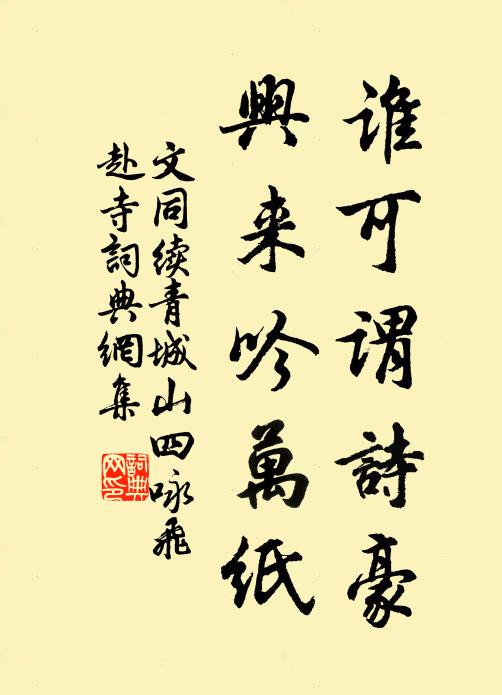 谁可謂詩豪
興来吟萬紙
文同续青城山四咏飛
赴寺詞典網集
詞典网印